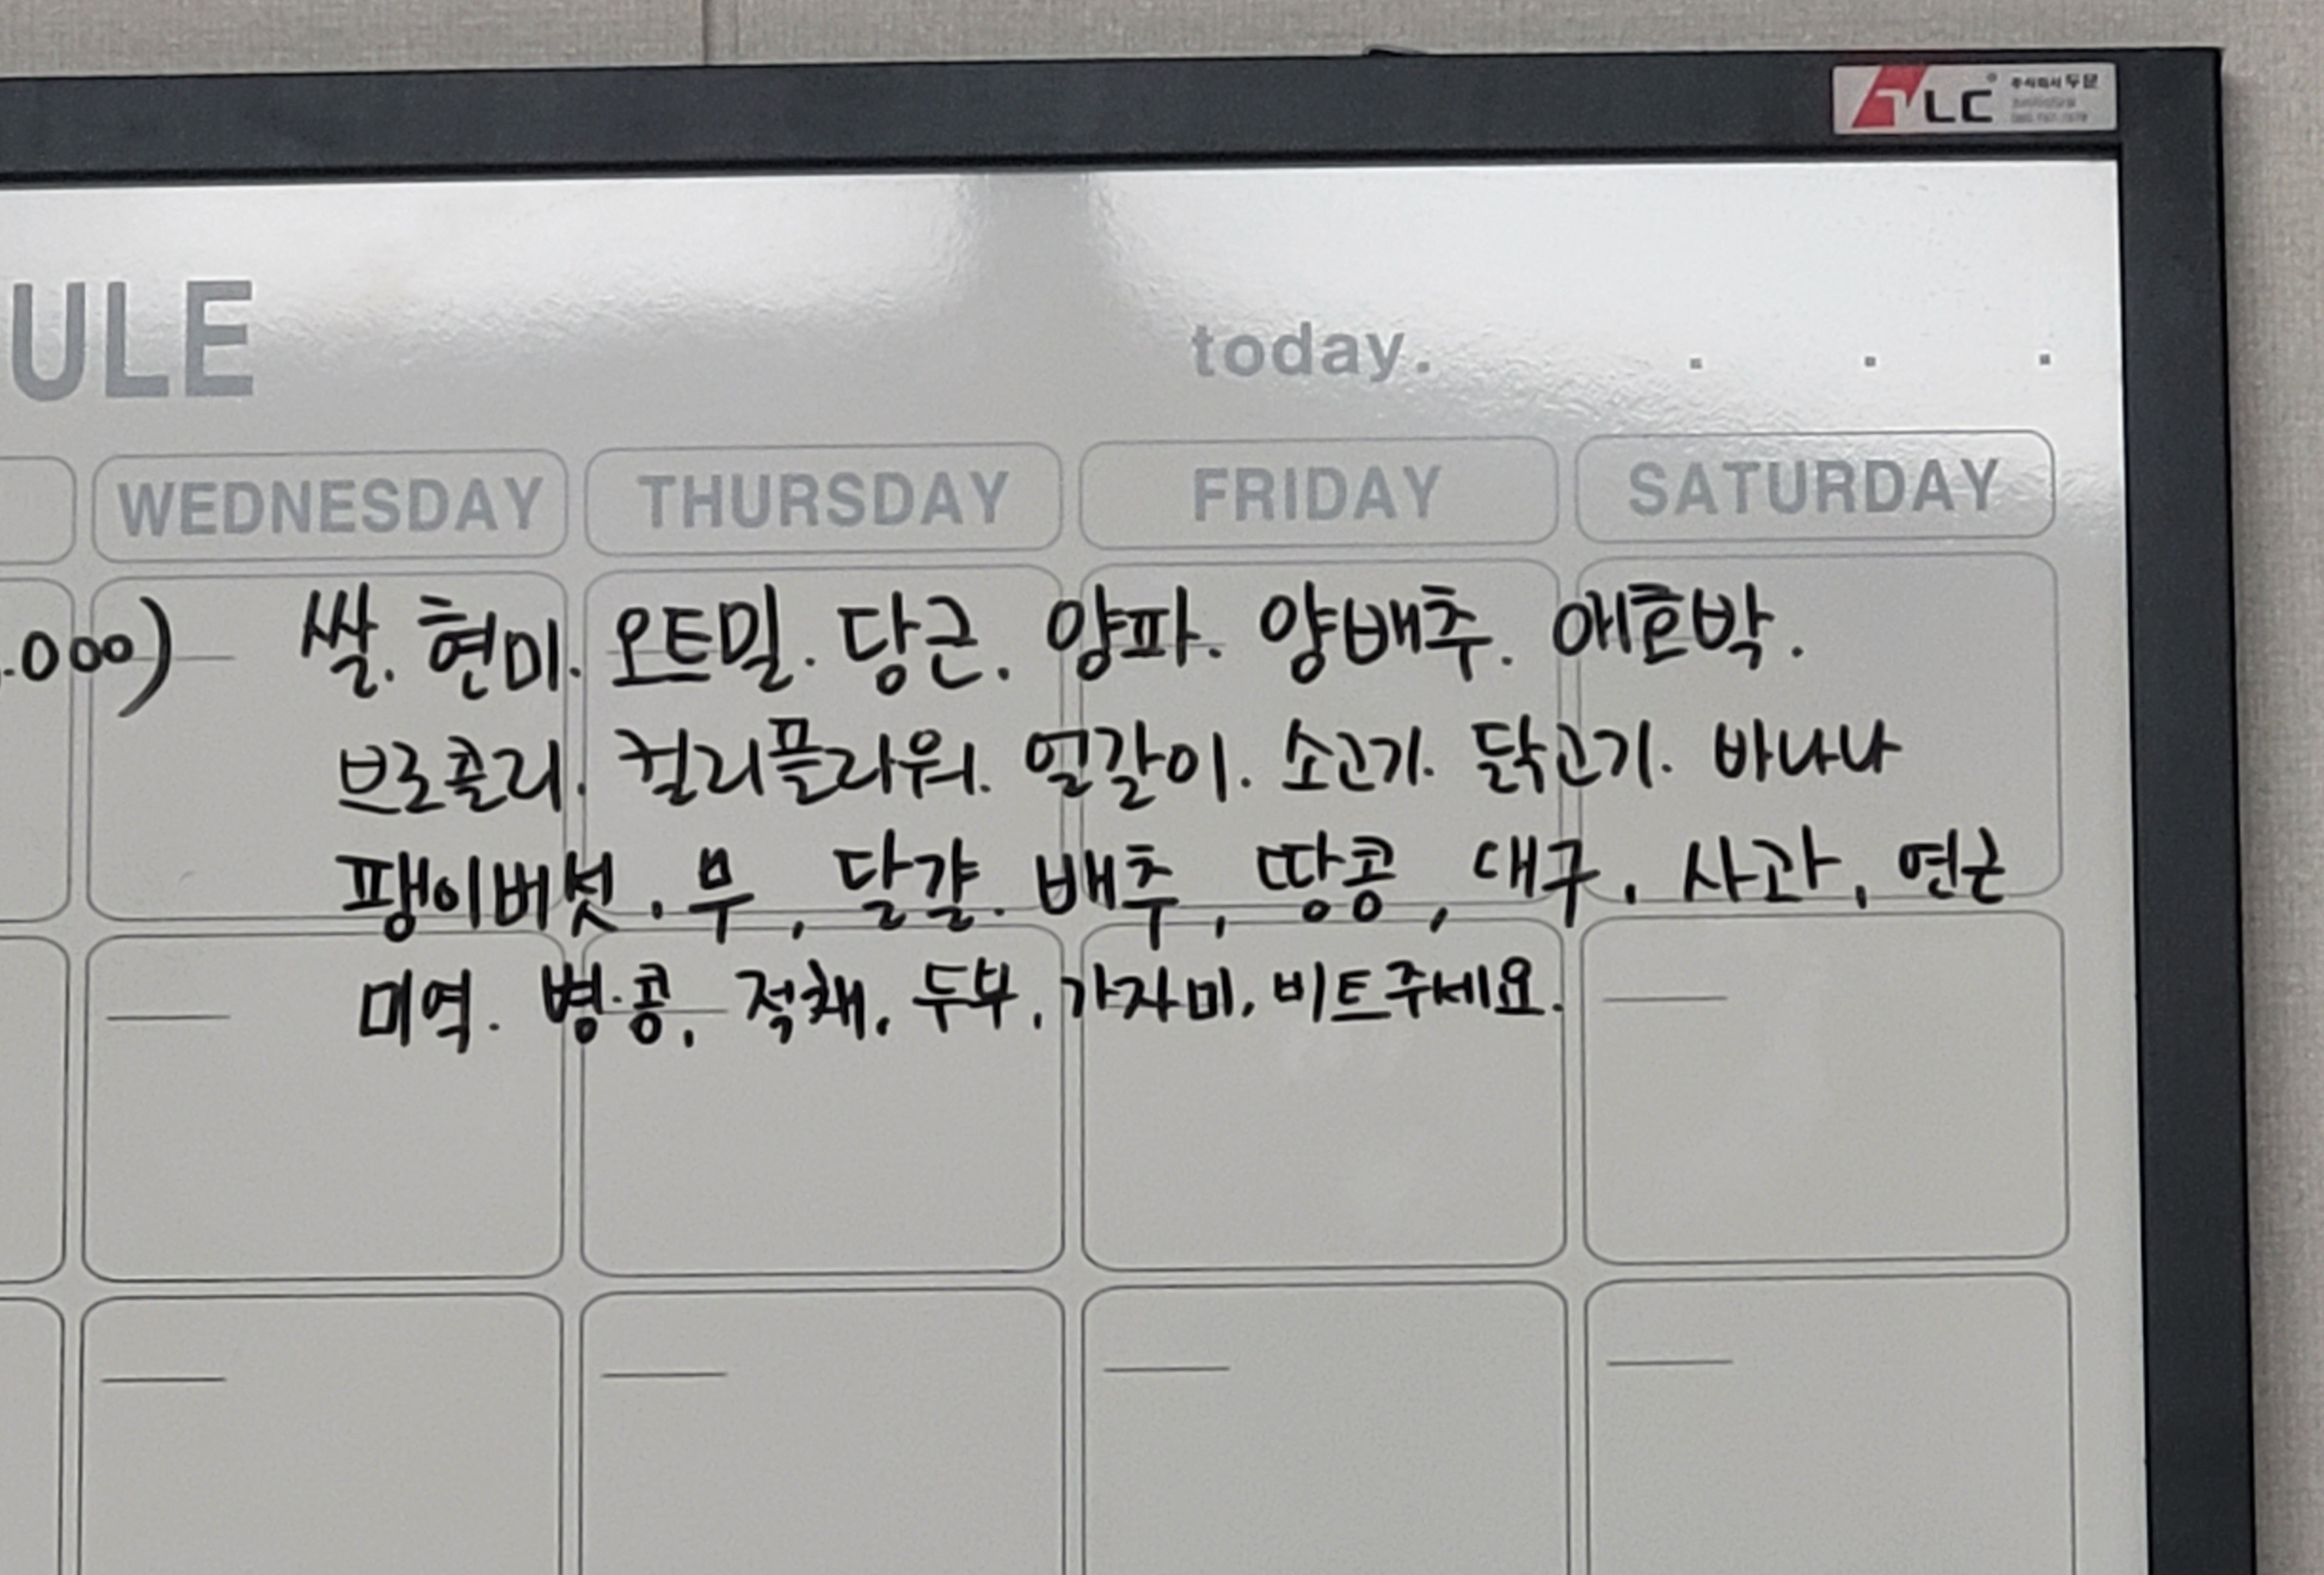 TLC® 주식회사 두문
ULE
today. . . .
WEDNESDAY THURSDAY FRIDAY SATURDAY
.000) 쌀. 현미. 오트밀. 당근. 양파. 양배추. 애호박.
브로콜리. 컬리플라워. 얼갈이. 소고기. 닭고기. 바나나
팽이버섯. 무, 달걀. 배추, 땅콩, 대구, 사과, 연근
미역. 병.콩, 적채, 두부, 가자미, 비트주세요.